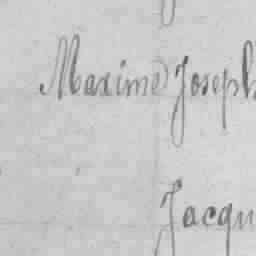 Maxime Joseph
Jacqu